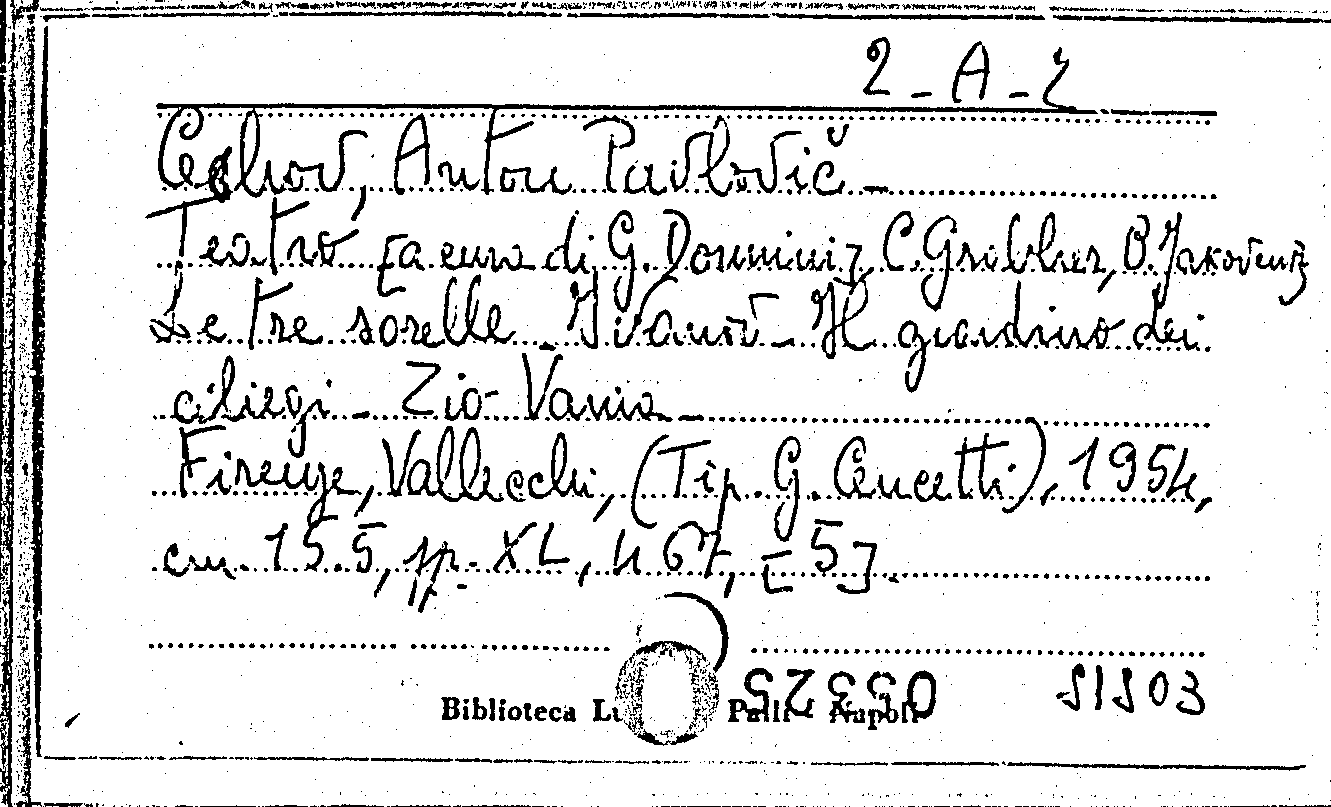 2-A-2
Cechov, Anton Pavlovič -
Teatro [a cura di G. Donnini], C. Grabher, B. Jakovenko
Le tre sorelle - Ivanov - Il giardino dei
ciliegi - Zio Vania -
Firenze, Vallecchi, (Tip. G. Cencetti), 1954,
cm. 15.5, pp. XL, 467, [5].
Biblioteca Palli - Napoli